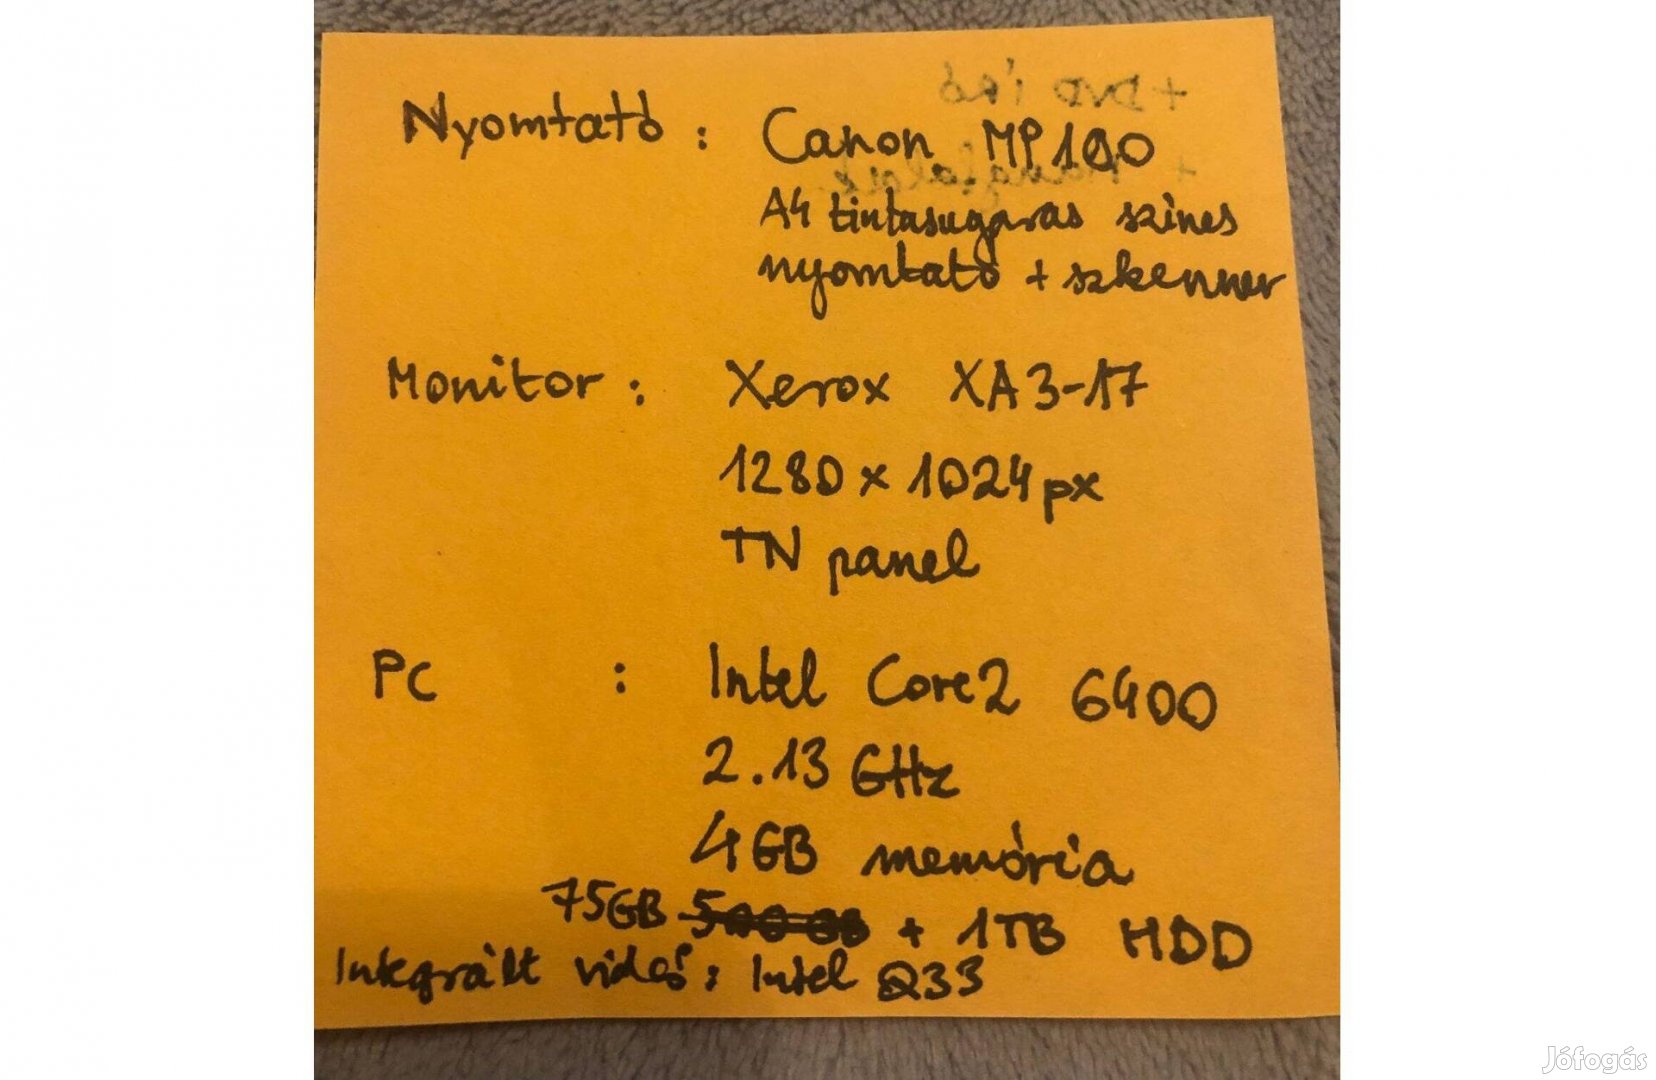 + DVD író
Nyomtató : Canon MP100
+ hangfalak
A4 tintasugaras színes
nyomtató + szkenner
Monitor : Xerox XA3-17
1280 x 1024 px
TN panel
PC : Intel Core2 6400
2.13 GHz
4GB memória
75GB 500 GB + 1TB HDD
Integrált videó: Intel Q33
Jófogás